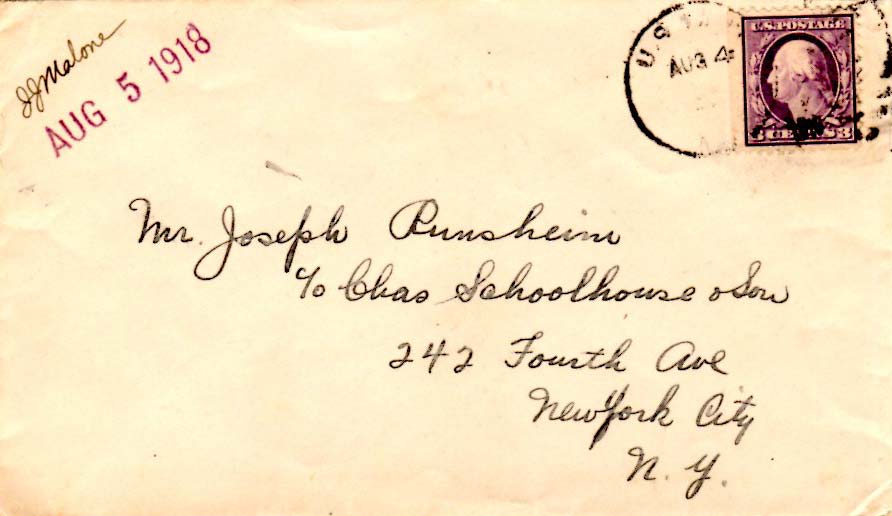 JJMalone
AUG 5 1918
U.S.
AUG 4
U.S. POSTAGE
3 CENTS 3
Mr. Joseph Runsheim
c/o Chas Schoolhouse & Son
242 Fourth Ave
New York City
N. Y.